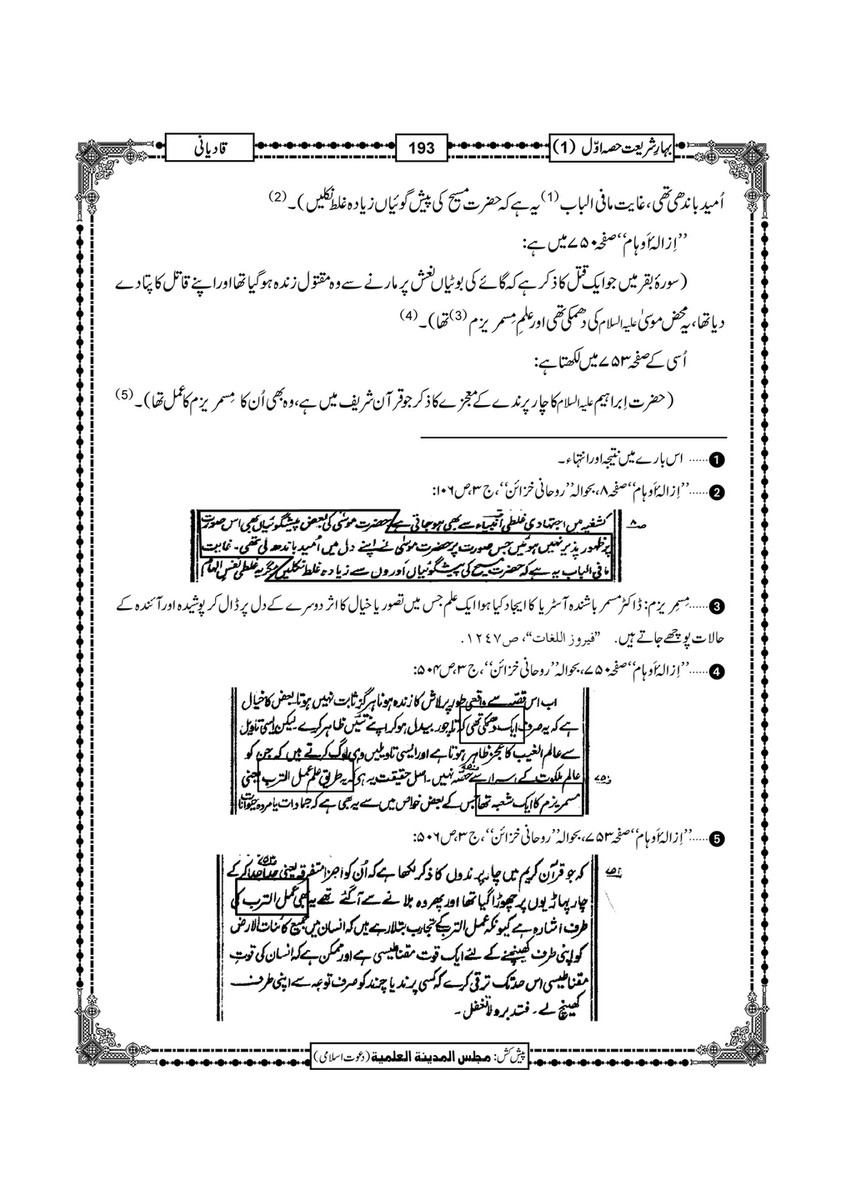 بہارِ شریعت حصہ اوّل (1)
193
قادیانی
اُمید باندھی تھی، غایت مافی الباب (1) یہ ہے کہ حضرت مسیح کی پیش گوئیاں زیادہ غلط نکلیں)۔ (2)
’’اِزالۂ اَوہام‘‘ صفحہ ۷۵۰ میں ہے:
(سورۂ بقر میں جو ایک قتل کا ذکر ہے کہ گائے کی بوٹیاں نعش پر مارنے سے وہ مقتول زندہ ہوگیا تھا اور اپنے قاتل کا پتا دے
دیا تھا، یہ محض موسیٰ علیہ السلام کی دھمکی تھی اور علمِ مِسمریزم (3) تھا)۔ (4)
اُسی کے صفحہ ۷۵۳ میں لکھتا ہے:
(حضرت اِبراہیم علیہ السلام کا چار پرندے کے معجزے کا ذکر جو قرآن شریف میں ہے، وہ بھی اُن کا مِسمریزم کا عمل تھا)۔ (5)
1 ...... اس بارے میں نتیجہ اور انتہاء۔
2 ...... ’’اِزالۂ اَوہام‘‘ صفحہ ۸، بحوالہ ’’روحانی خزائن‘‘، ج ۳، ص ۱۰۶:
کشفیہ میں اجتہادی غلطی انبیاء سے بھی ہو جاتی ہے حضرت موسیٰ کی بعض پیشگوئیاں بھی اس صورت
پر ظہور پذیر نہیں ہوئیں جس صورت پر حضرت موسیٰ نے اپنے دل میں اُمید باندھ لی تھی۔ غایت
مافی الباب یہ ہے کہ حضرت مسیح کی پیشگوئیاں اَوروں سے زیادہ غلط نکلیں مگر یہ غلطی نفس الہام
3 ...... مِسمِریزم: ڈاکٹر مسمر باشندہ آسٹریا کا ایجاد کیا ہوا ایک علم جس میں تصور یا خیال کا اثر دوسرے کے دل پر ڈال کر پوشیدہ اور آئندہ کے
حالات پوچھے جاتے ہیں۔ ’’فیروز اللغات‘‘، ص ۱۲۴۷.
4 ...... ’’اِزالۂ اَوہام‘‘ صفحہ ۷۵۰، بحوالہ ’’روحانی خزائن‘‘، ج ۳، ص ۵۰۴:
اب اس قصہ سے واقعی طور پر لاش کا زندہ ہونا ہرگز ثابت نہیں ہوتا بعض کا خیال
ہے کہ یہ صرف ایک دھمکی تھی کہ تا چور بیدل ہو کر اپنے تئیں ظاہر کرے لیکن ایسی تاویل
سے عالم الغیب کا عجز ظاہر ہوتا ہے اور ایسی تاویلیں وہی لوگ کرتے ہیں کہ جن کو
عالم ملکوت کے اسرار سے حصّہ نہیں۔ اصل حقیقت یہ ہے کہ یہ طریق علم عمل الترب یعنی
مسمریزم کا ایک شعبہ تھا جس کے بعض خواص میں سے یہ بھی ہے کہ جمادات یا مردہ حیوانات
5 ...... ’’اِزالۂ اَوہام‘‘ صفحہ ۷۵۳، بحوالہ ’’روحانی خزائن‘‘، ج ۳، ص ۵۰۶:
کہ جو قرآن کریم میں چار پرندوں کا ذکر لکھا ہے کہ اُن کو اجزاء متفرقہ یعنی جدا جدا کر کے
چار پہاڑیوں پر چھوڑا گیا تھا اور پھر وہ بلانے سے آگئے تھے یہ بھی عمل الترب کی
طرف اشارہ ہے کیونکہ عمل الترب کے تجارب بتلا رہے ہیں کہ انسان میں جمیع کائنات الارض
کو اپنی طرف کھینچنے کے لئے ایک قوت مقناطیسی ہے اور ممکن ہے کہ انسان کی قوتِ
مقناطیسی اس حد تک ترقی کرے کہ کسی پرند یا چرند کو صرف توجہ سے اپنی طرف
کھینچ لے۔ فتدبر ولا تغفل۔
پیش کش: مجلس المدینة العلمیة (دعوت اسلامی)